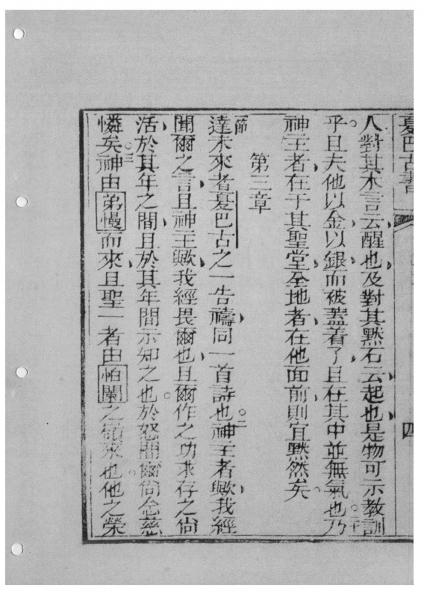 夏巴古書 四
人對其木言云醒也及對其黙石云起也是物可示教訓
乎且夫他以金以銀而被蓋着了且在其中並無氣也乃
神主者在于其聖堂全地者在他面前則宜黙然矣
第三章
達未來者夏巴古之一告禱同一首詩也神主者歟我經
聞爾之言且神主歟我經畏爾也且爾作之功求存之尙
活於其年之間且於其年間示知之也於怒間爾尙念慈
憐矣神由弟慢而來且聖一者由怕闌之嶺來也他之榮